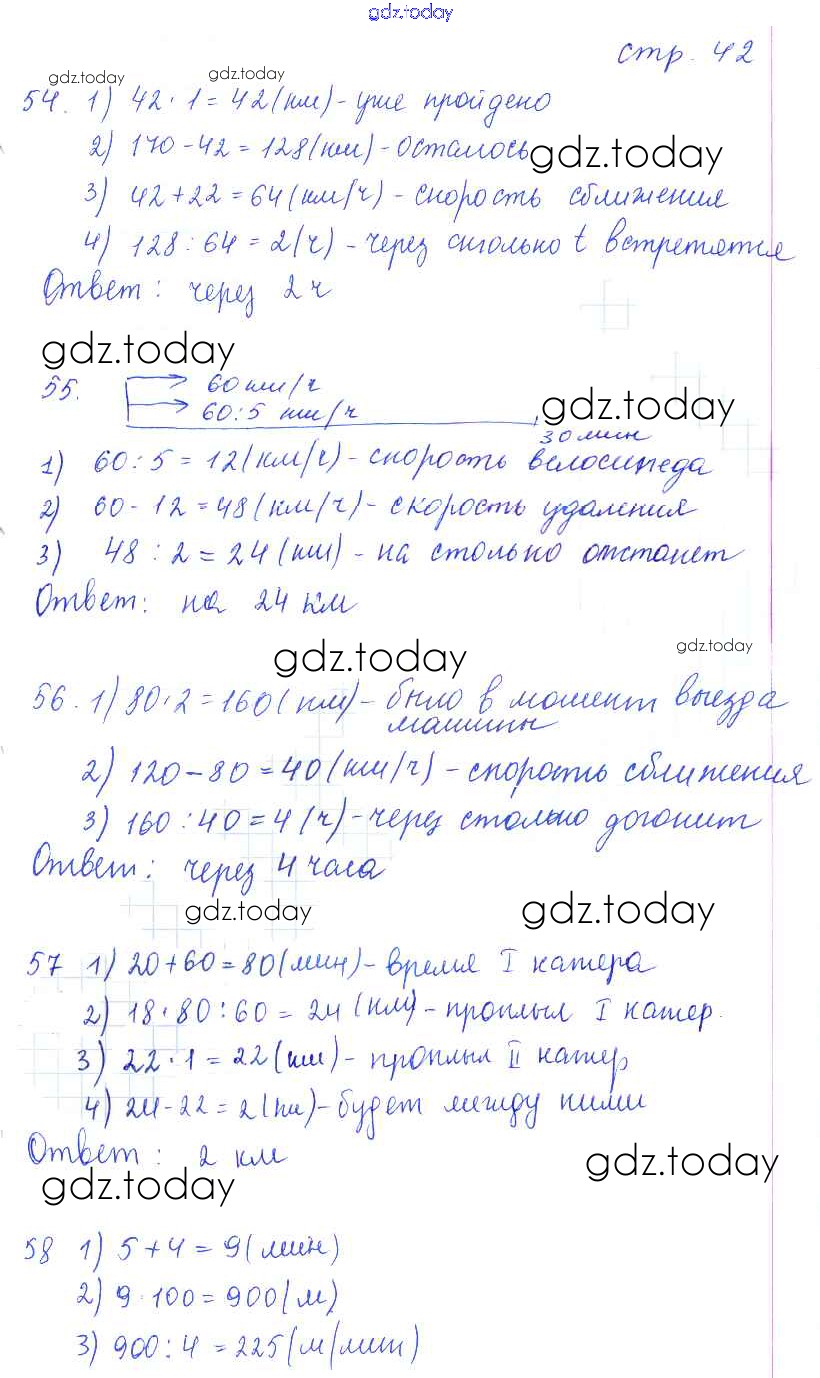 gdz.today
стр. 42
gdz.today gdz.today
54. 1) 42 · 1 = 42 (км) - уже пройдено
2) 170 - 42 = 128 (км) - осталось gdz.today
3) 42 + 22 = 64 (км/ч) - скорость сближения
4) 128 : 64 = 2 (ч) - через сколько t встретятся
Ответ: через 2 ч
gdz.today
55. 60 км/ч
60:5 км/ч gdz.today
30 мин
1) 60 : 5 = 12 (км/ч) - скорость велосипеда
2) 60 - 12 = 48 (км/ч) - скорость удаления
3) 48 : 2 = 24 (км) - на столько отстанет
Ответ: на 24 км
gdz.today gdz.today
56. 1) 80 · 2 = 160 (км) - было в момент выезда
машины
2) 120 - 80 = 40 (км/ч) - скорость сближения
3) 160 : 40 = 4 (ч) - через столько догонит
Ответ: через 4 часа
gdz.today gdz.today
57 1) 20 + 60 = 80 (мин) - время I катера
2) 18 · 80 : 60 = 24 (км) - проплыл I катер.
3) 22 · 1 = 22 (км) - проплыл II катер
4) 24 - 22 = 2 (км) - будет между ними
Ответ: 2 км
gdz.today gdz.today
58 1) 5 + 4 = 9 (мин)
2) 9 · 100 = 900 (м)
3) 900 : 4 = 225 (м/мин)